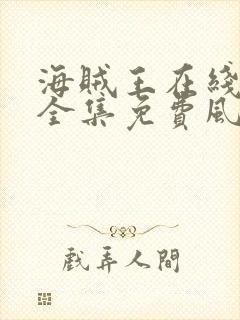 海賊王在綫
全集免費風
戲弄人間